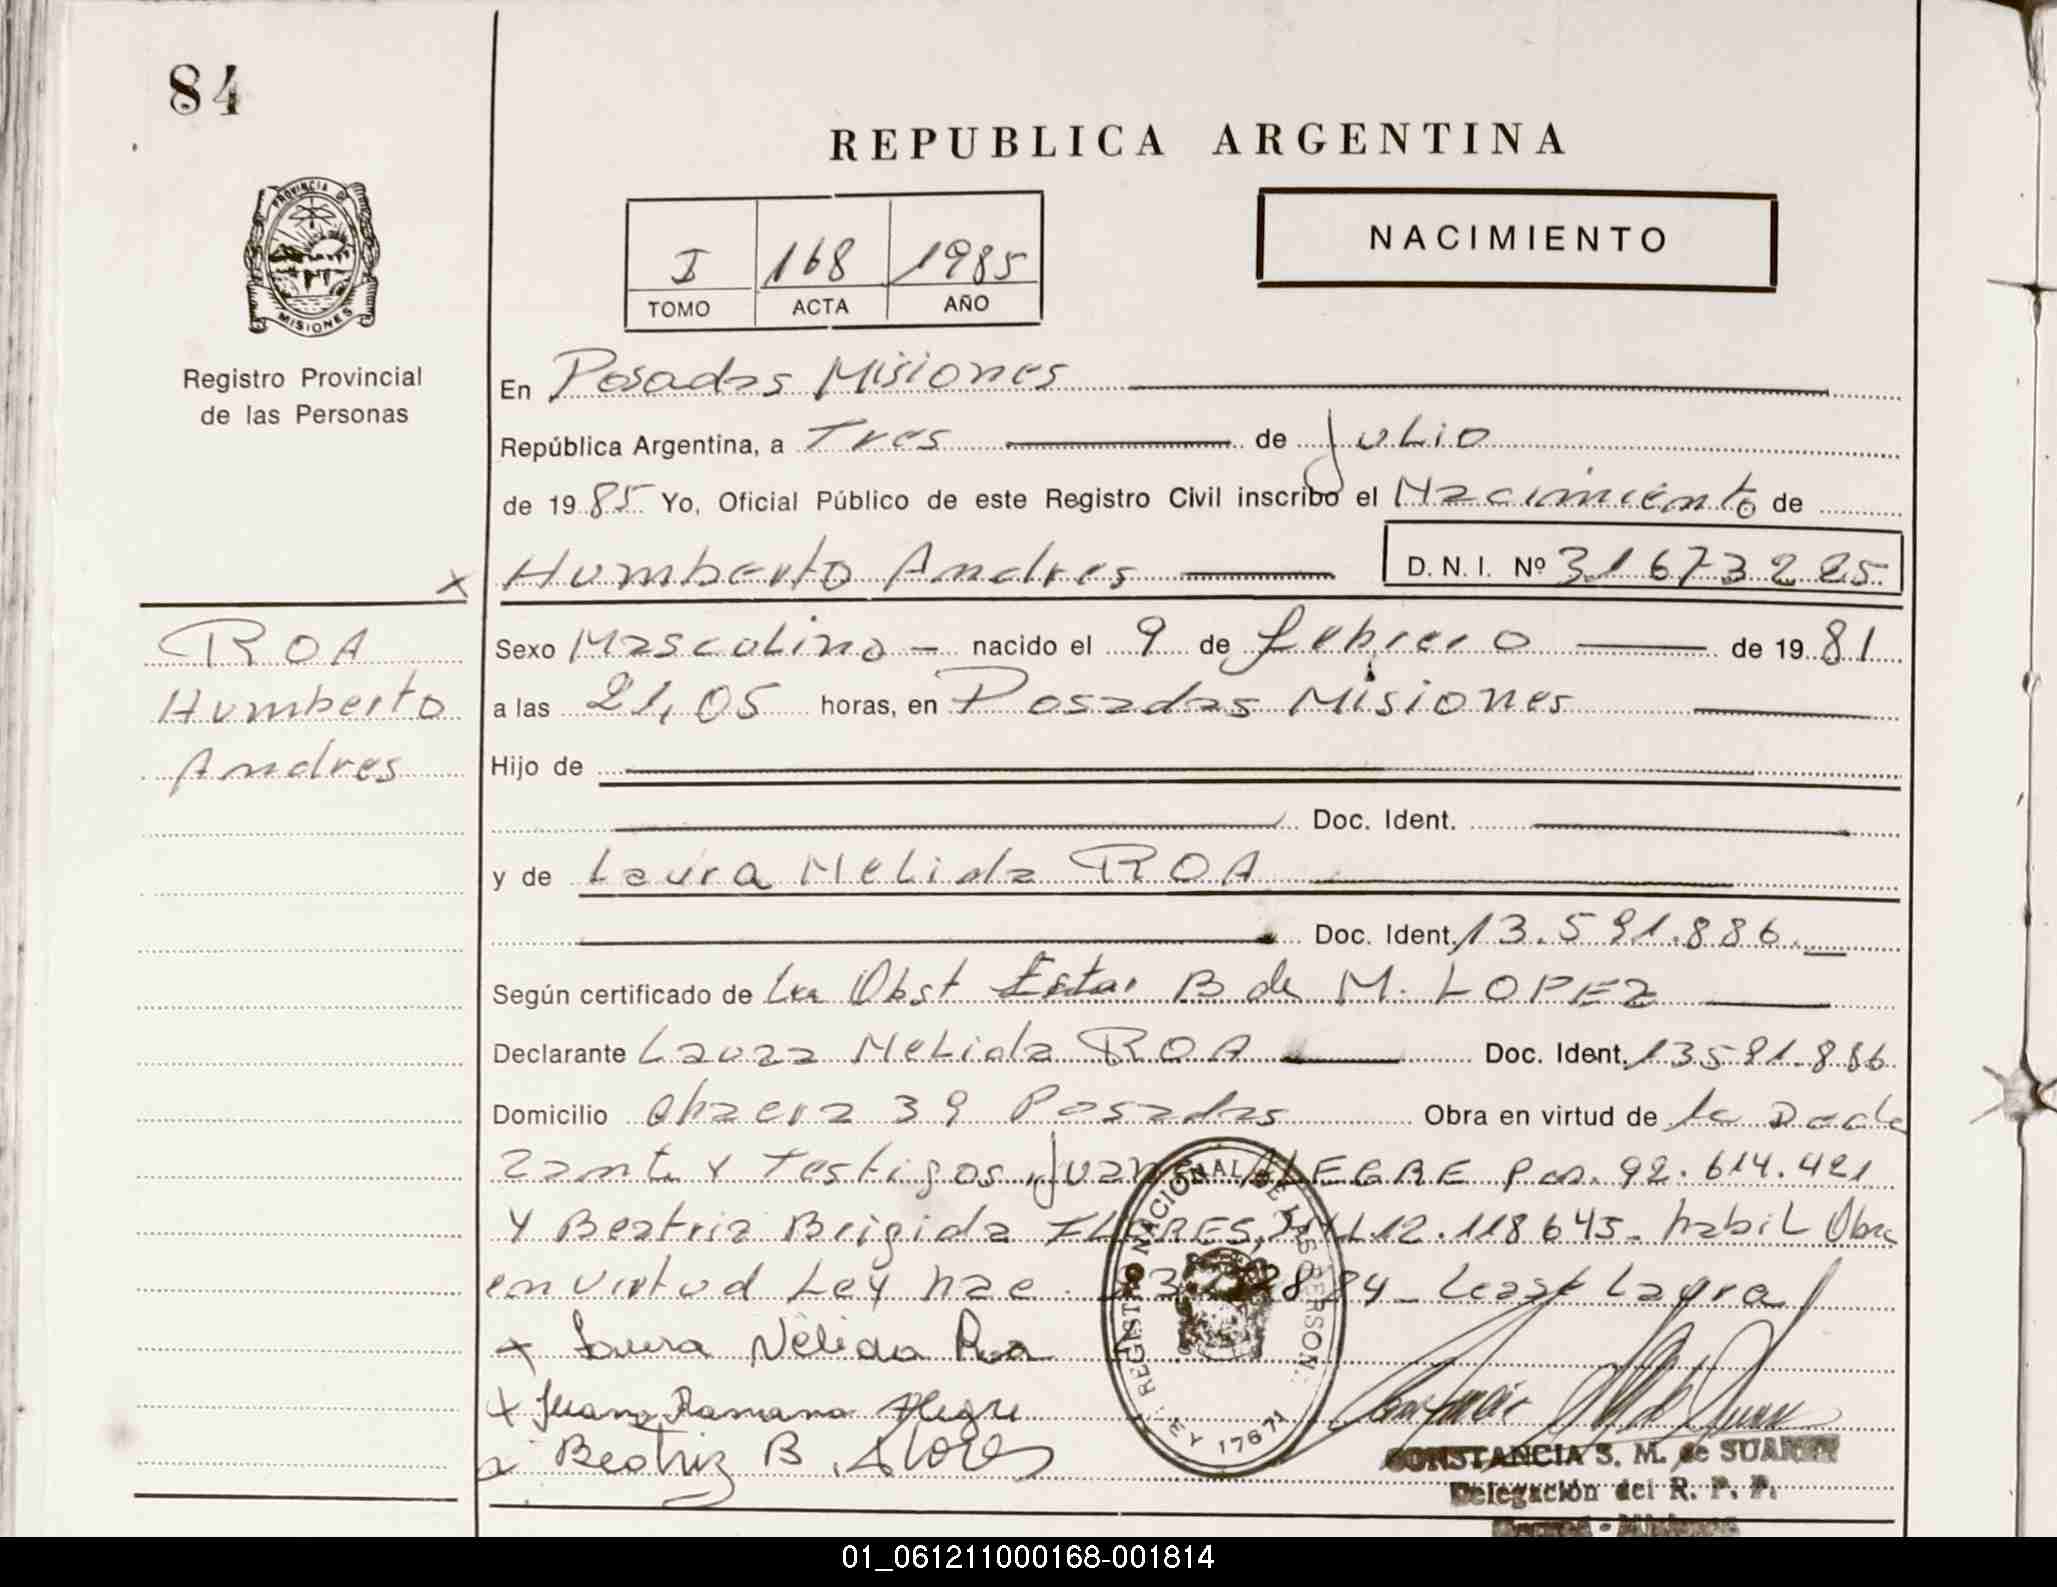 84
REPUBLICA ARGENTINA
PROVINCIA DE
MISIONES
Registro Provincial
de las Personas
I 168 1985
TOMO ACTA AÑO
NACIMIENTO
En Posadas Misiones
República Argentina, a Tres de Julio
de 1985 Yo, Oficial Público de este Registro Civil inscribo el Nacimiento de
x Humberto Andres D. N. I. Nº 31673225
ROA
Humberto
Andres
Sexo Masculino - nacido el 9 de febrero de 1981
a las 21,05 horas, en Posadas Misiones
Hijo de
Doc. Ident.
y de Laura Nelida ROA
Doc. Ident. 13.591.886
Según certificado de La Obst Ester B de M. LOPEZ
Declarante Laura Nelida ROA Doc. Ident. 13591.886
Domicilio 39 Posadas Obra en virtud de la Decla
rante y Testigos, Juan ALEGRE 92.614.421
y Beatriz Brigida FLORES, 12.118645- habil Obra
en virtud Ley nac. Laura
x Laura Nélida Roa
x Juana Ramona Alegre
x Beatriz B. Flores
REGISTRO NACIONAL DE LAS PERSON
LEY 17671
CONSTANCIA S. M. de SUAREZ
Delegación del R. P. P.
01_061211000168-001814